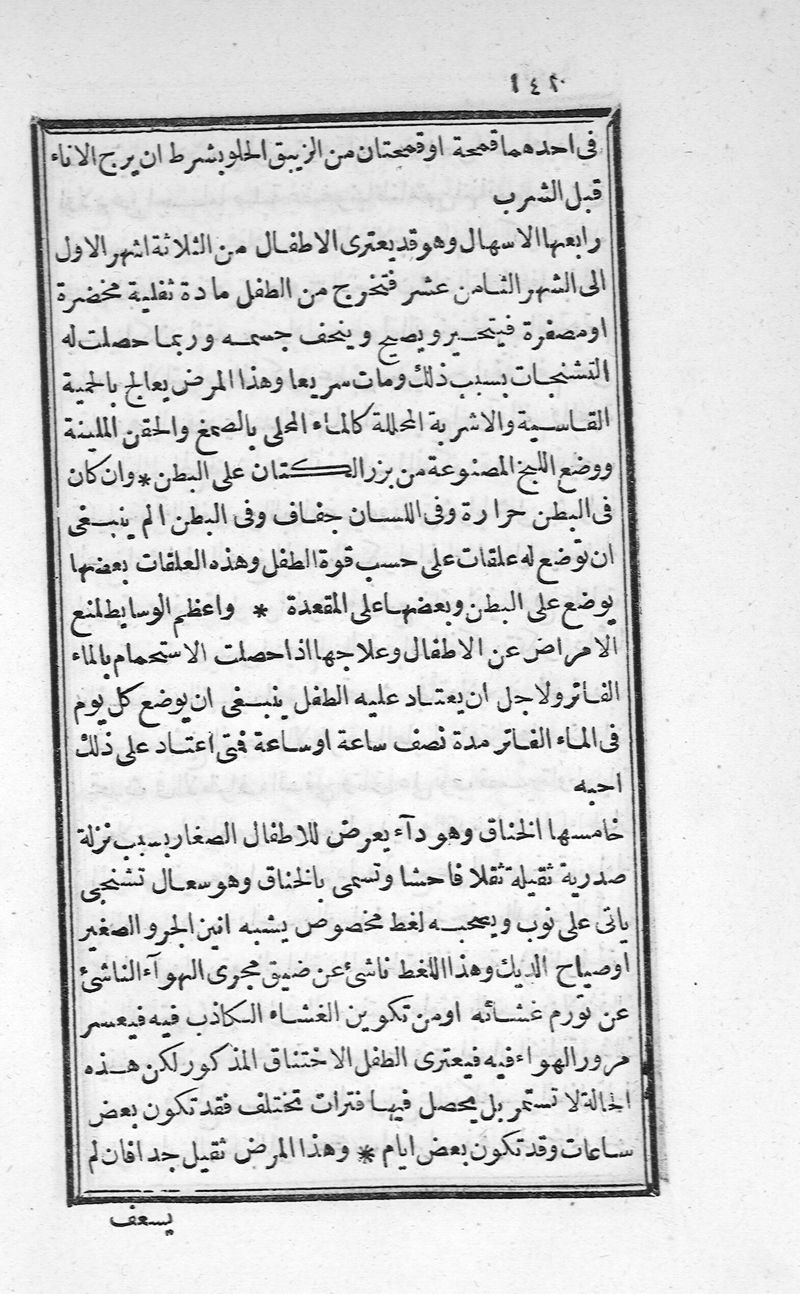 ١٤٢
فى احدهما قمحة او قمحتان من الزيبق الحلو بشرط ان يرج الاناء
قبل الشرب
رابعها الاسهال وهو قد يعترى الاطفال من الثلاثة اشهر الاول
الى الشهر الثامن عشر فتخرج من الطفل مادة ثفلية مخضرة
او مصفرة فيتحير ويصيح وينحف جسمه وربما حصلت له
التشنجات بسبب ذلك ومات سريعا وهذا المرض يعالج بالحمية
القاسية والاشربة المحللة كالماء المحلى بالصمغ والحقن الملينة
ووضع اللبخ المصنوعة من بزر الكتان على البطن * وان كان
فى البطن حرارة وفى اللسان جفاف وفى البطن الم ينبغى
ان توضع له علقات على حسب قوة الطفل وهذه العلقات بعضها
يوضع على البطن وبعضها على المقعدة * واعظم الوسايط لمنع
الامراض عن الاطفال وعلاجها اذا حصلت الاستحمام بالماء
الفاتر ولاجل ان يعتاد عليه الطفل ينبغى ان يوضع كل يوم
فى الماء الفاتر مدة نصف ساعة او ساعة فمتى اعتاد على ذلك
احبه
خامسها الخناق وهو دآء يعرض للاطفال الصغار بسبب نزلة
صدرية ثقيلة ثقلا فاحشا وتسمى بالخناق وهو سعال تشنجى
ياتى على نوب ويصحبه لغط مخصوص يشبه انين الجرو الصغير
او صياح الديك وهذا اللغط ناشئ عن ضيق مجرى الهوآء الناشئ
عن تورم غشائه او من تكوين الغشاء الكاذب فيه فيعسر
مرور الهواء فيه فيعترى الطفل الاختناق المذكور لكن هذه
الحالة لا تستمر بل يحصل فيها فترات تختلف فقد تكون بعض
ساعات وقد تكون بعض ايام * وهذا المرض ثقيل جدا فان لم
يسعف